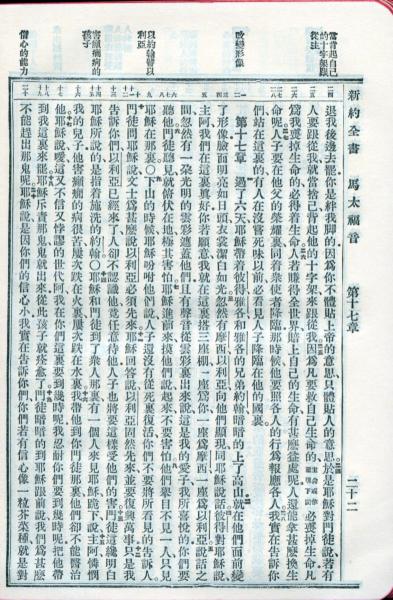 新約全書 馬太福音 第十七章 二十二
當背起自己
的十字架跟
從主
退我後邊去罷你是絆我腳的因爲你不體貼上帝的意思只體貼人的意思於是耶穌對門徒說若有
人要跟從我就當捨己背起他的十字架來跟從我因爲凡要救自己生命的生命或作靈魂下同必喪掉生命凡
爲我喪掉生命的必得着生命人若賺得全世界賠上自己的生命有甚麼益處呢人還能拿甚麼換生
命呢人子要在他父的榮耀裏同着衆使者降臨那時候他要照各人的行爲報應各人我實在告訴你
們站在這裏的有人在沒嘗死味以前必看見人子降臨在他的國裏
改變形像
第十七章 過了六天耶穌帶着彼得雅各和雅各的兄弟約翰暗暗的上了高山就在他們面前變
了形像臉面明亮如日頭衣裳潔白如光忽然有摩西以利亞向他們顯現同耶穌說話彼得對耶穌說
主阿我們在這裏眞好你若願意我就在這裏搭三座棚一座爲你一座爲摩西一座爲以利亞說話之
間忽然有一朵光明的雲彩遮蓋他們且有聲音從雲彩裏出來說這是我的愛子我所喜悅的你們要
聽他門徒聽見就俯伏在地極其害怕耶穌進前來摸他們說起來不要害怕他們舉目不見一人只見
耶穌在那裏○下山的時候耶穌吩咐他們說人子還沒有從死裏復活你們不要將所看見的告訴人
以約翰譬以
利亞
門徒問耶穌說文士爲甚麼說以利亞必須先來耶穌回答說以利亞固然先來並要復興萬事只是我
告訴你們以利亞已經來了人卻不認識他竟任意待他人子也將要這樣受他們的害門徒這纔明白
耶穌所說的是指着施洗的約翰○耶穌和門徒到了衆人那裏有一個人來見耶穌跪下說主阿憐憫
害癲癇病的
孩子
我的兒子他害癲癇的病很苦屢次跌在火裏屢次跌在水裏我帶他到你門徒那裏他們卻不能醫治
他耶穌說噯這又不信又悖謬的世代阿我在你們這裏要到幾時呢我忍耐你們要到幾時呢把他帶
到我這裏來罷耶穌斥責那鬼鬼就出來從此孩子就痊愈了門徒暗暗的到耶穌跟前說我們爲甚麼
信心的能力
不能趕出那鬼呢耶穌說是因你們的信心小我實在告訴你們你們若有信心像一粒芥菜種就是對